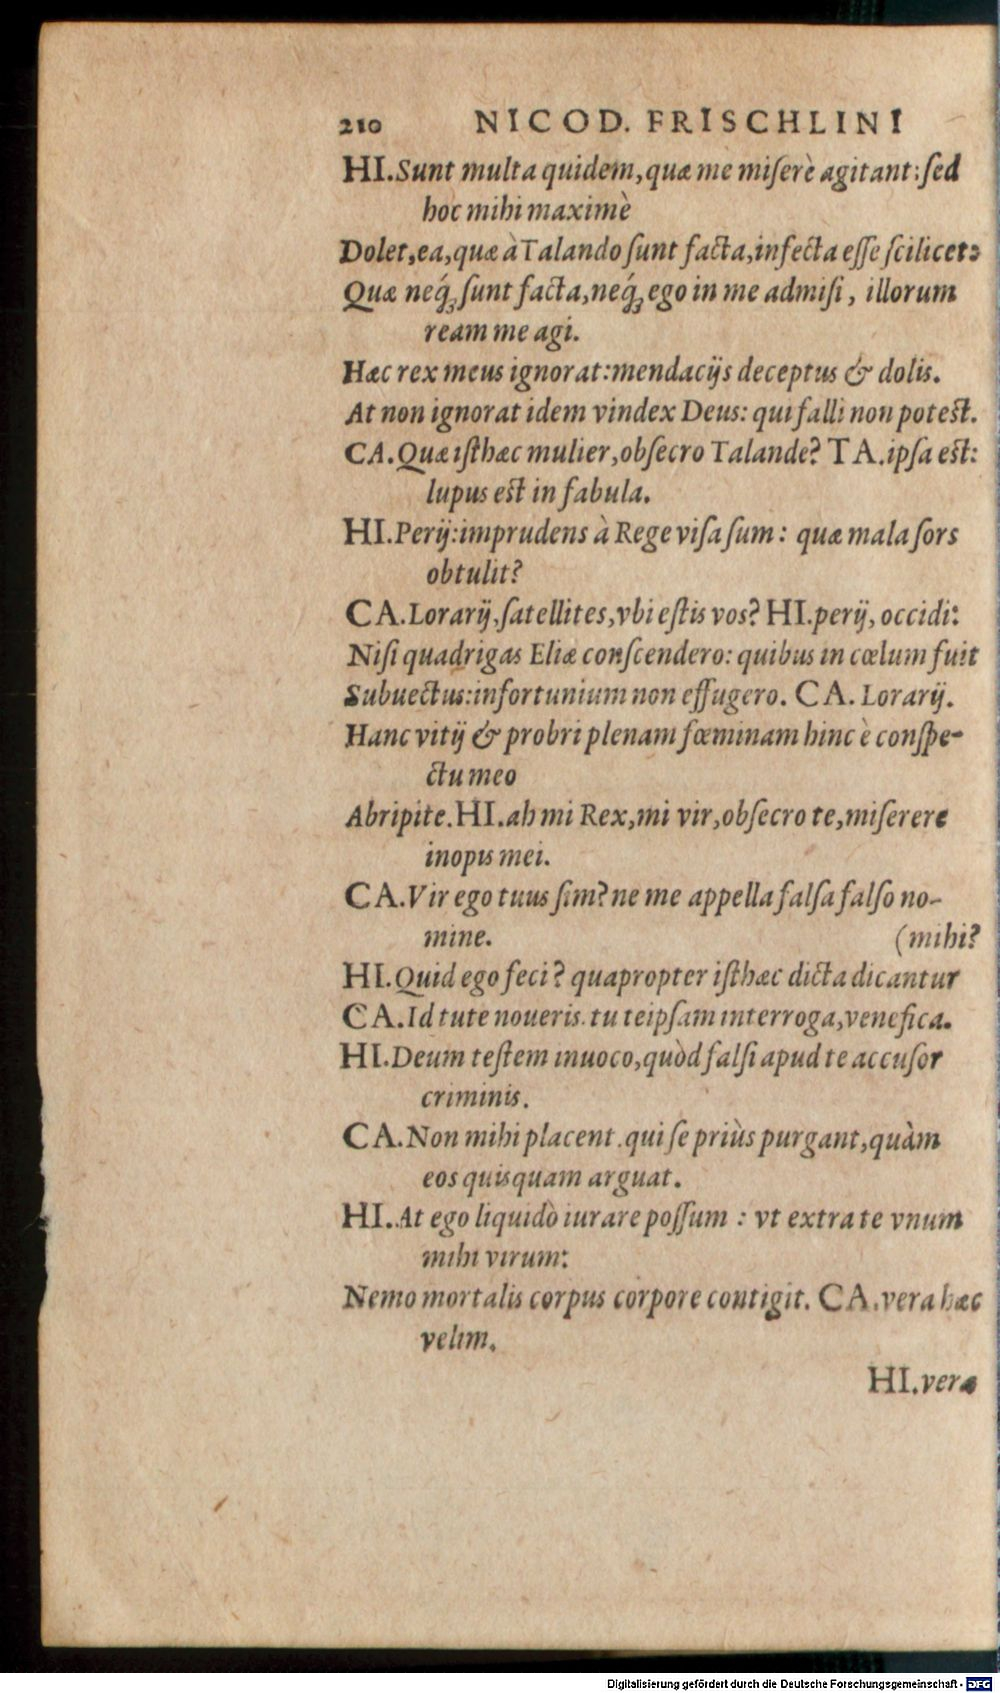 210 NICOD. FRISCHLINI
HI. Sunt multa quidem, quæ me miserè agitant: sed
hoc mihi maximè
Dolet, ea, quæ à Talando sunt facta, infecta esse scilicet:
Quæ neq́; sunt facta, neq́; ego in me admisi, illorum
ream me agi.
Hæc rex meus ignorat: mendacijs deceptus & dolis.
At non ignorat idem vindex Deus: qui falli non potest.
CA. Quæ isthæc mulier, obsecro Talande? TA. ipsa est:
lupus est in fabula.
HI. Perij: imprudens à Rege visa sum: quæ mala sors
obtulit?
CA. Lorarij, satellites, vbi estis vos? HI. perij, occidi:
Nisi quadrigas Eliæ conscendero: quibus in cœlum fuit
Subuectus: infortunium non effugero. CA. Lorarij.
Hanc vitij & probri plenam fœminam hinc è conspe-
ctu meo
Abripite. HI. ah mi Rex, mi vir, obsecro te, miserere
inopis mei.
CA. Vir ego tuus sim? ne me appella falsa falso no-
mine. (mihi?
HI. Quid ego feci? quapropter isthæc dicta dicantur
CA. Id tute noueris. tu teipsam interroga, venefica.
HI. Deum testem inuoco, quòd falsi apud te accusor
criminis.
CA. Non mihi placent. qui se priùs purgant, quàm
eos quisquam arguat.
HI. At ego liquidò iurare possum: vt extra te vnum
mihi virum:
Nemo mortalis corpus corpore contigit. CA. vera hæc
velim.
HI. vera
Digitalisierung gefördert durch die Deutsche Forschungsgemeinschaft - DFG